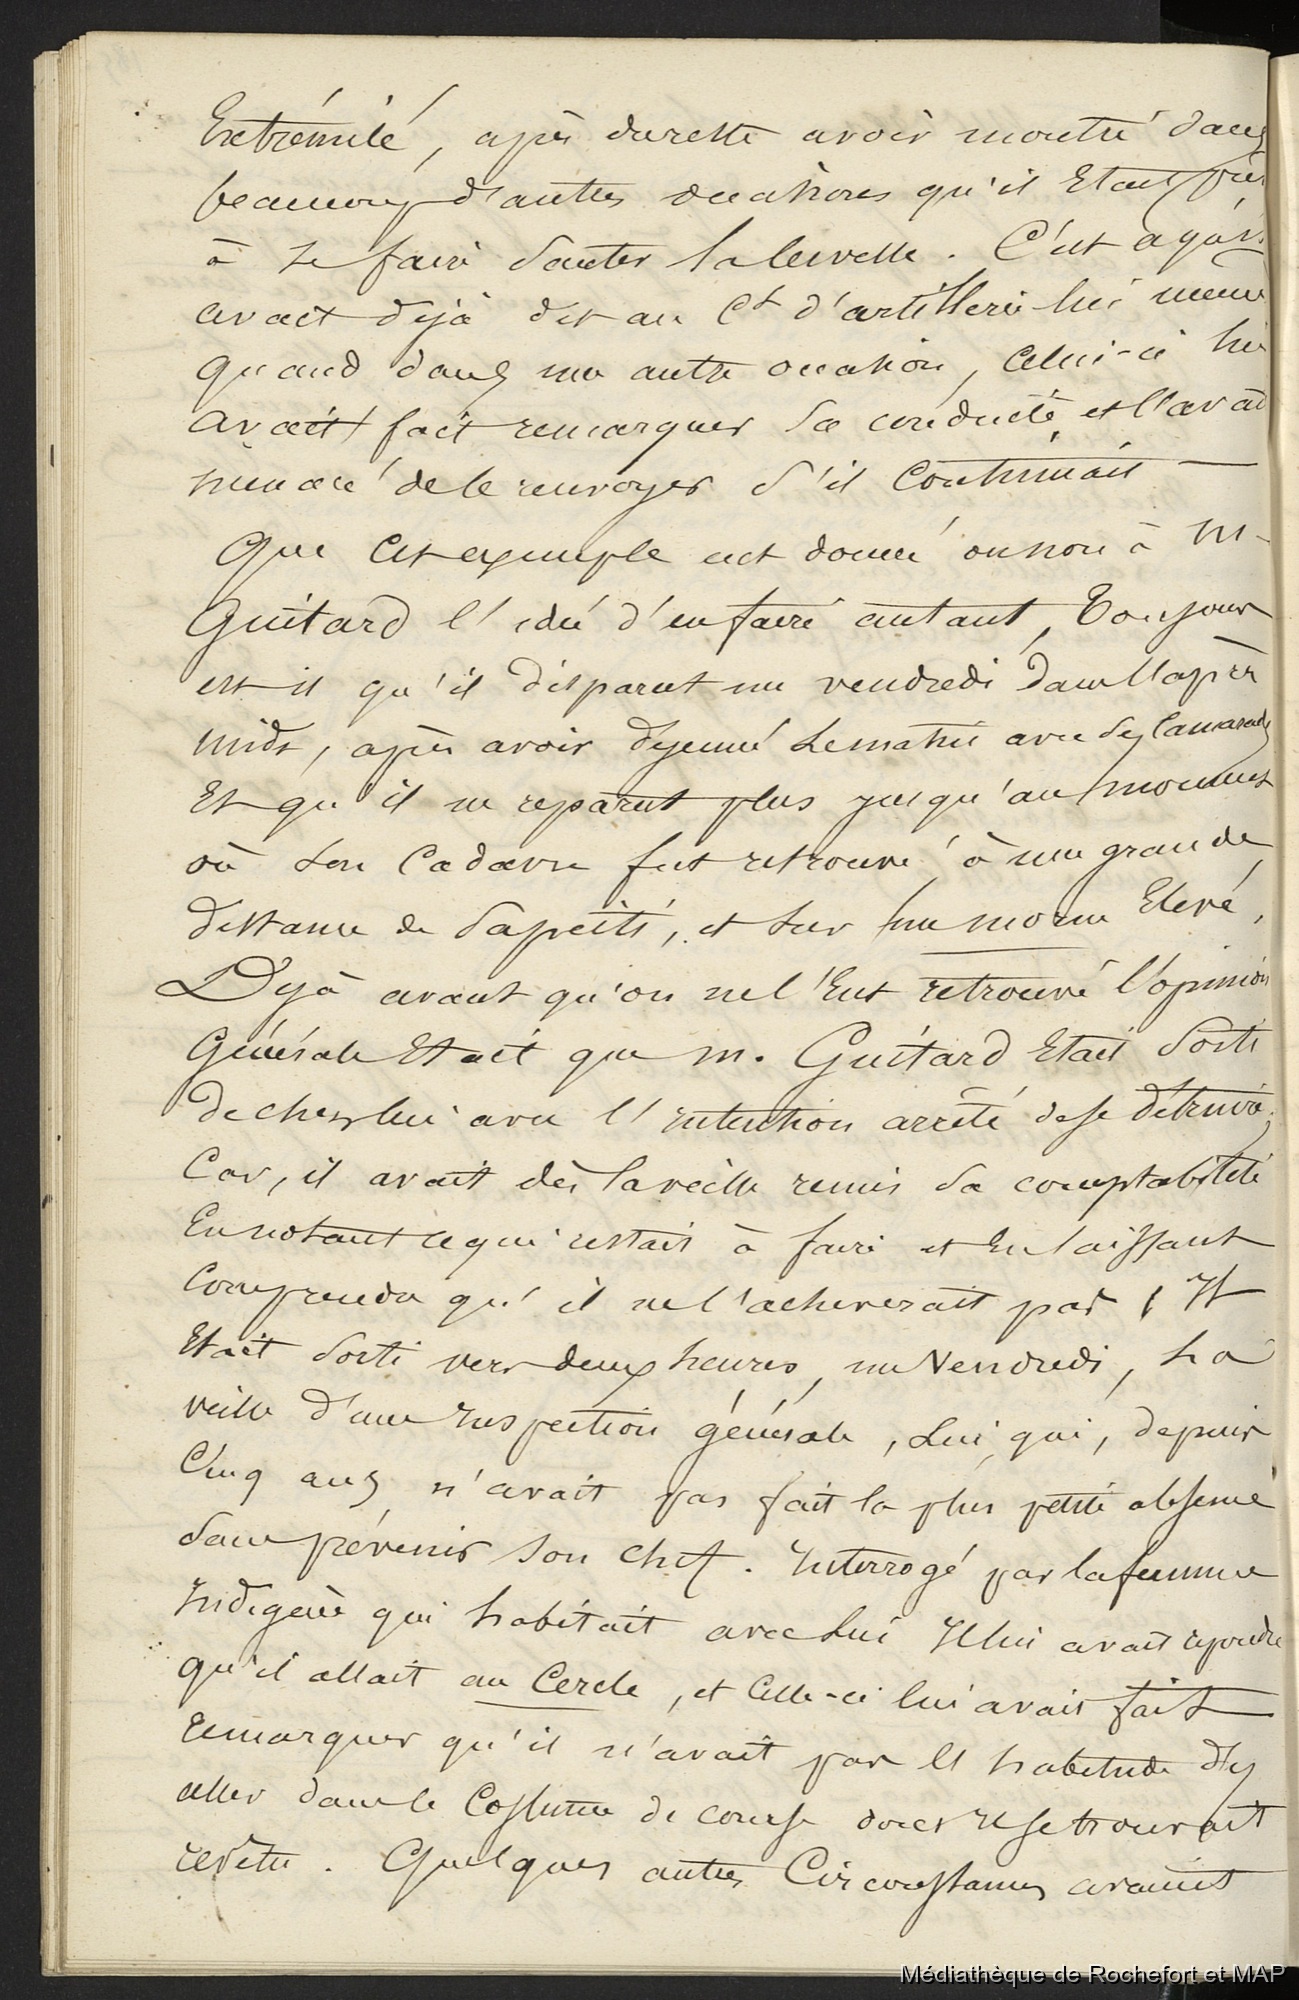 Extrémité, après dureste avoir montré dans
beaucoup d'autres occasions qu'il Etait prêt
à se faire sauter la cervelle. C'est ce qu'il
avait déjà dit au Ct d'artillerie lui même
quand dans une autre occasion, celui-ci lui
avait fait remarquer sa conduite et l'avait
menacé de le renvoyer s'il Continuait —
Que cet exemple eut donné ou non à M.
Guitard l'idée d'en faire autant, Toujours
est il qu'il disparut un vendredi dans l'après
midi, après avoir déjeuné le matin avec des camarades
Et qu'il ne reparut plus jusqu'au moment
où son Cadavre fut retrouvé à une grande
distance de Papeïti, et sur un morne Elevé,
Déjà avant qu'on ne l'Eut retrouvé l'opinion
Générale Etait que M. Guitard Etait Sorti
de chez lui avec l'intention arrêté de se détruire,
Car, il avait dès la veille remis sa comptabilité
En notant ce qui restait à faire et En laissant
Comprendre qu'il ne l'acheverait pas, Il
Etait Sorti vers deux heures, un Vendredi, la
veille d'une Inspection générale, Lui qui, depuis
Cinq ans n'avait pas fait la plus petite absence
sans prévenir son chef. Interrogé par la femme
Indigène qui habitait avec Lui Il lui avait repondu
qu'il allait au Cercle, et Celle-ci lui avait fait
remarquer qu'il n'avait pas l'habitude d'y
aller dans le Costume de course dont Il se trouvait
revêtu. Quelques autres Circonstances avaient
Médiathèque de Rochefort et MAP